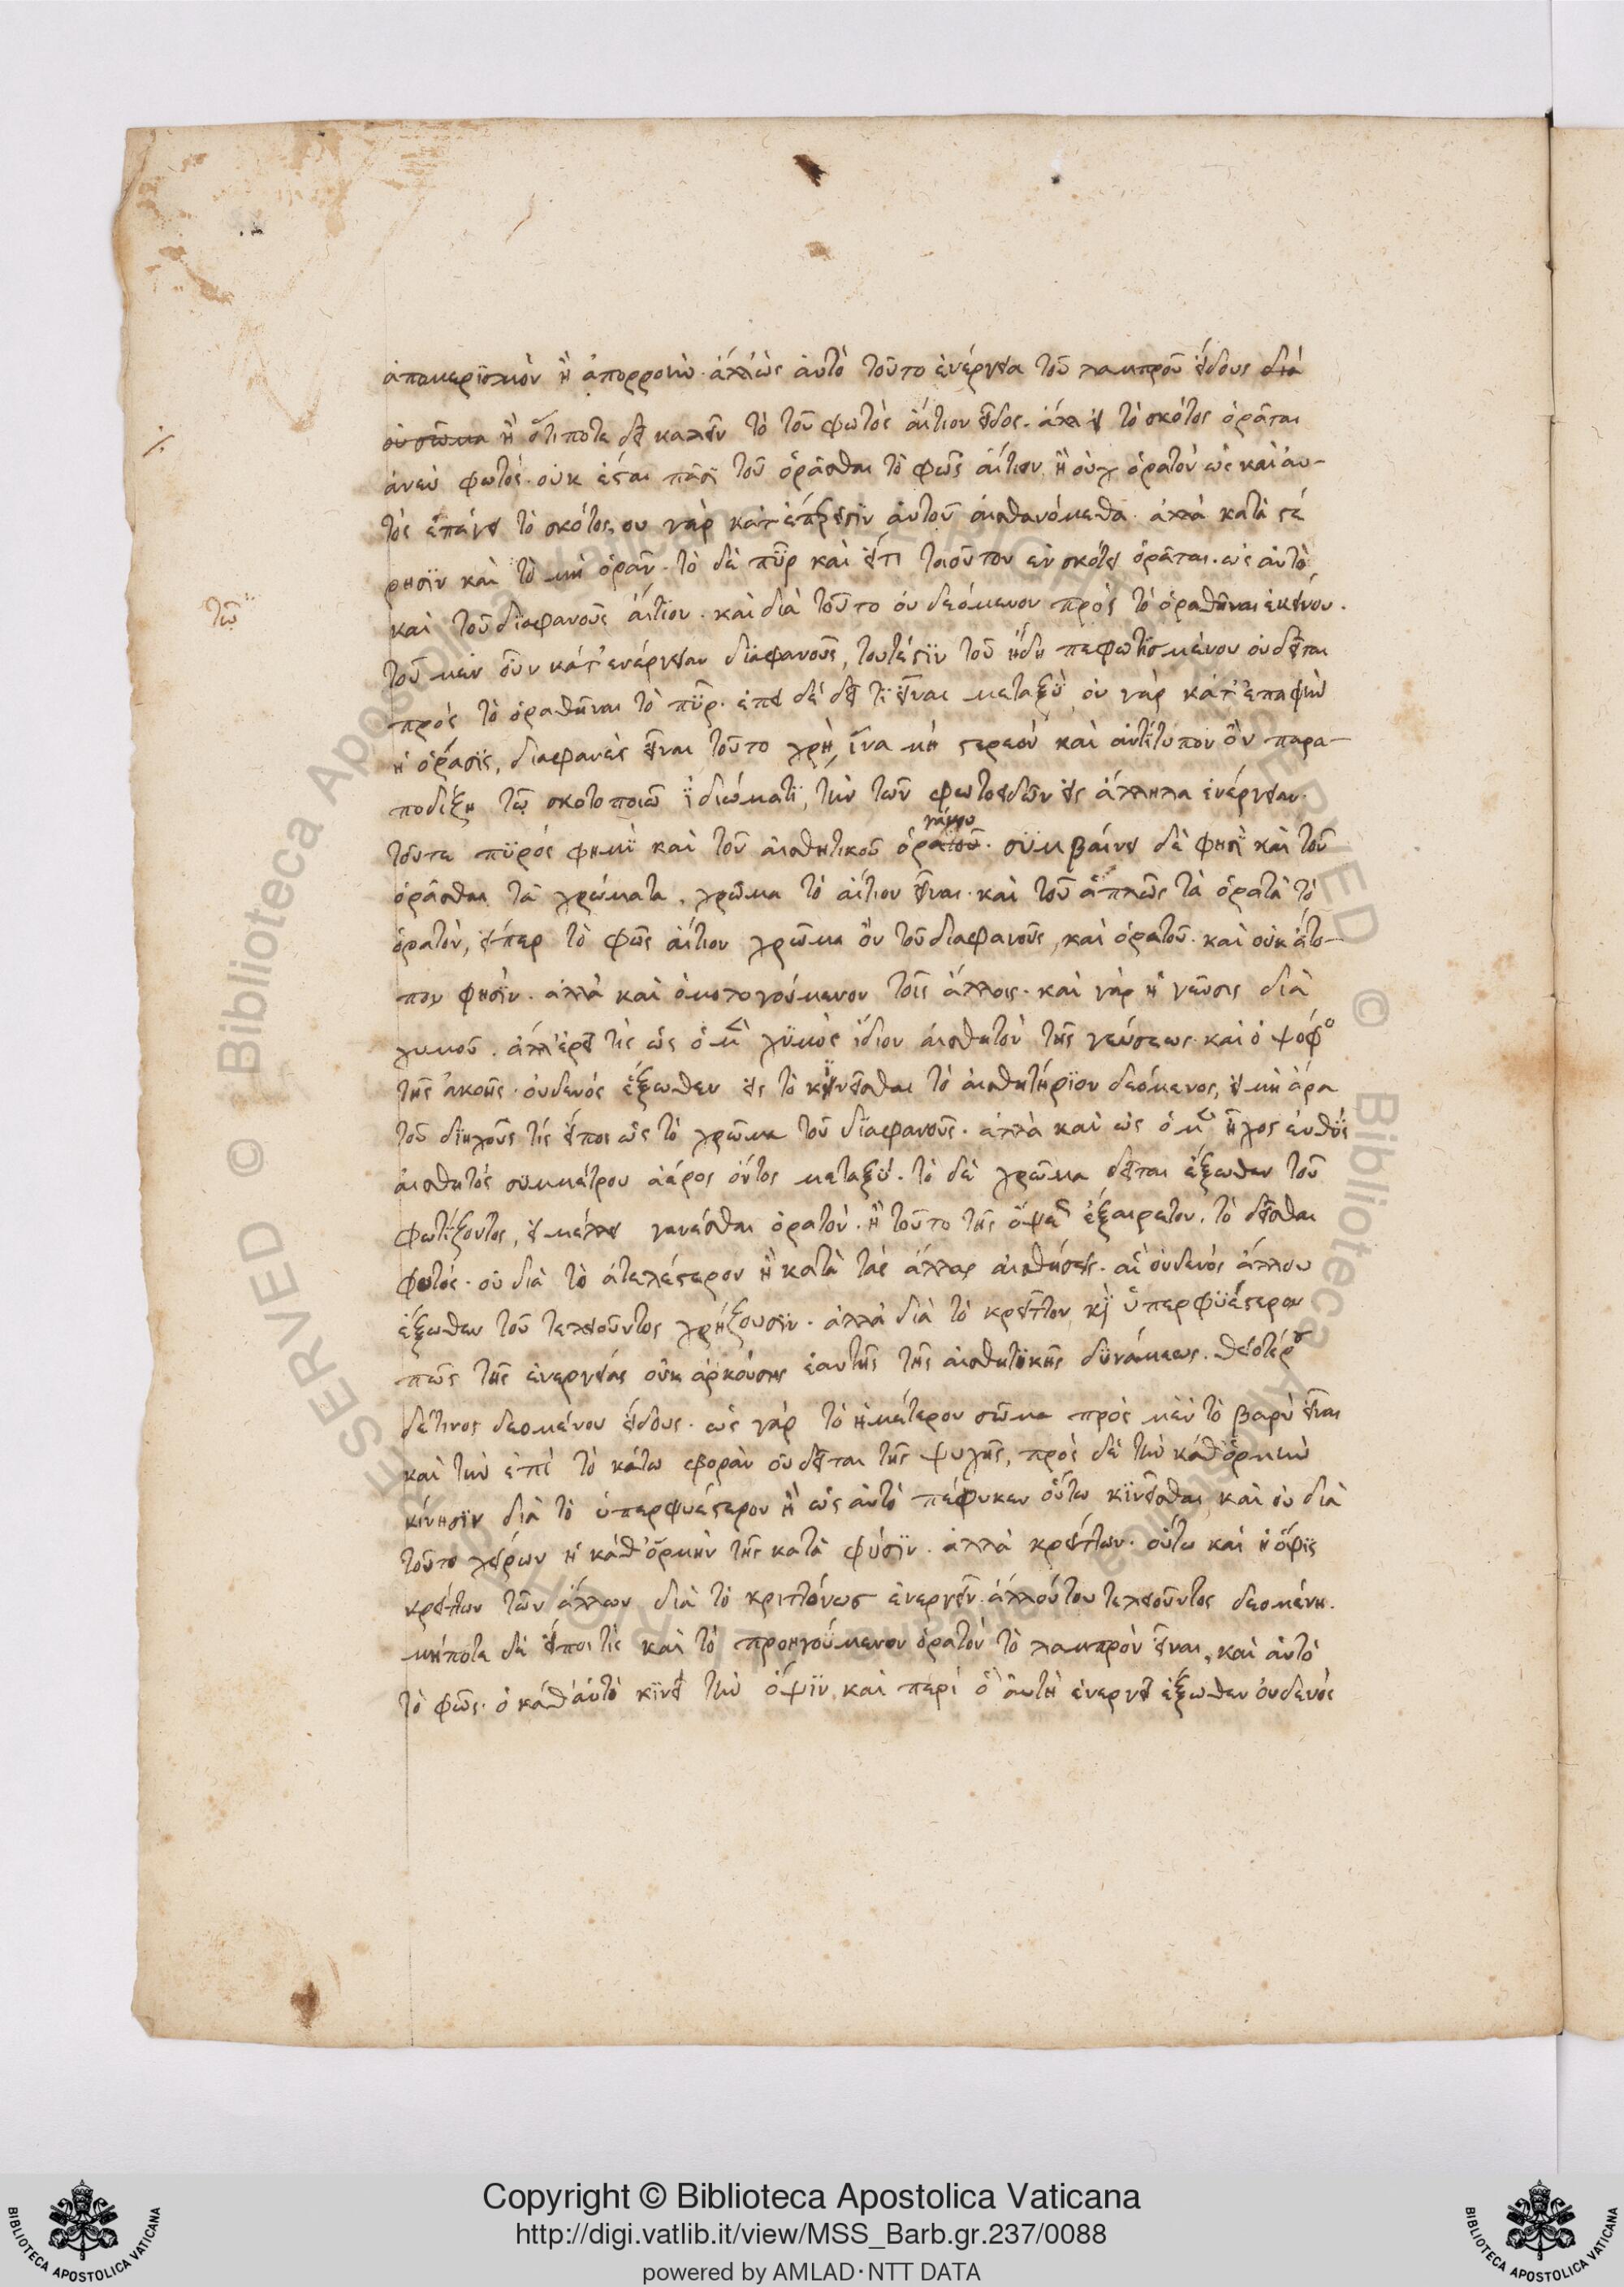 ἀπομερϊσμὸν ἢ ἀπορροιὼ. ἀλλ' ὡς ἀυτὸ τοῦτο ἐνέργεια τοῦ λαμπροῦ ἔιδους διὰ
οὐ σῶμα ἢ ὅτι ποτε δεῖ καλεῖν τὸ τοῦ φωτὸς ἀίτιον εἶδος. ἀλλ' εἰ τὸ σκότος ὁρᾶται
ἀνεὺ φωτός. οὐκ ἔσται πᾶσι τοῦ ὁρᾶσθαι τὸ φῶς ἀίτιον. ἢ οὐχ ὁρατὸν ὡς καὶ ἀυ-
τὸς ἐπάγει τὸ σκότος. ου γὰρ κατ' ἐπέρεισϊν ἀυτοῦ ἀισθανόμεθα. ἀλλὰ κατὰ στέ
ρησϊν καὶ τὸ μὴ ὁρᾶν. τὸ δὲ πῦρ καὶ εἴτι τοιοῦτον εν σκότει ὁρᾶται. ὡς ἀυτὸ
τῶ
καὶ τοῦ διαφανοῦς ἀίτϊον. καὶ διὰ τοῦτο ὀυ δεόμενον πρὸς τὸ ὁραθῆναι ἐκείνου.
τοῦ μὲν οὖν κατ' ενέργειαν διαφανοῦς, τουτέστϊν τοῦ ἤδη πεφωτϊσμένου ὀυ δεῖται
πρὸς τὸ ὁραθῆναι τὸ πῦρ. ἐπεὶ δέ δεῖ τϊ εἶναι μεταξὺ, ὀυ γὰρ κατ' ἐπαφὴν
ἡ ὅρασϊς, διαφανὲς εἶναι τοῦτο χρὴ, ἵνα μὴ στερεὸν καὶ ἀντίτυπον ὂν παρα-
ποδίξη τῶ σκοτοποιῶ ϊδιώματϊ, τὴν τῶν φωτοειδῶν εἰς ἄλληλα ἐνέργειαν.
τοῦτε πϋρὸς φημὶ καὶ τοῦ ἀισθητικοῦ ὁρατοῦ. συμβαίνει δὲ φησὶ καὶ τοῦ
ὁρᾶσθαι τὰ χρώματα, χρῶμα τὸ ἀίτιον εἶναι. καὶ τοῦ ἁπλῶς τὰ ὁρατὰ τὸ
ὁρατὸν, εἴπερ τὸ φῶς ἀίτιον χρῶμα ὂν τοῦ διαφανοῦς, καὶ ὁρατοῦ. καὶ οὐκ ἄτο-
πον φησϊν. ἀλλὰ καὶ ὁμολογούμενον τοῖς ἄλλοις. καὶ γὰρ ἡ γεῦσις διὰ
χυμοῦ. ἀλλ' ἐρεῖ τὶς ὡς ὁ μ χϋμὸς ἴδιον ἀισθητὸν τῆς γεύσεως. καὶ ὁ ψόφο
τῆς ἀκοῆς. ὀυδενὸς ἔξωθεν εἰς τὸ κινεῖσθαι τὸ ἀισθητήρϊον δεόμενος, εἰ μὴ ἄρα
τοῦ διηχοῦς τίς εἴποι ὡς τὸ χρῶμα τοῦ διαφανοῦς. ἀλλὰ καὶ ὡς ὁ μ ἦχος ἐυθϋς
ἀισθητός συμμέτρου ἀέρος ὄντος μεταξὺ. τὸ δὲ χρῶμα δεῖται ἔξωθεν τοῦ
φωτίζοντος, εἰ μέλλει γενέσθαι ὁρατὸν. ἢ τοῦτο τῆς ὄψε ἐξαιρετον. τὸ δεῖσθαι
φωτός. οὐ διὰ τὸ ἀτελέστερον ἢ κατὰ τὰς ἄλλας ἀισθήσεις. αἳ ὀυδενὸς ἄλλου
ἔξωθεν τοῦ τελειοῦντος χρήζουσϊν. ἀλλὰ διὰ τὸ κρεῖττον κϳ ὑπερφϋέστερον
πῶς τῆς ἐνεργείας οὐκ ἀρκόυσης ἑαυτῆς τῆς ἀισθητικῆς δυνάμεως. θειοτέρ
δέ τινος δεομένου ἔιδους. ὡς γὰρ τὸ ἡμέτερον σῶμα πρὸς μὲν τὸ βαρὺ εἶναι
καὶ τὴν ἐπὶ τὸ κάτω φορὰν ὀυ δεῖται τῆς ψυχῆς, πρὸς δὲ τὴν καθ' ὁρμὴν
κίνησϊν διὰ τὸ ὑπερφυέστερον ἢ ὡς ἀυτὸ πέφυκεν ὅυτω κϊνεῖσθαι καὶ ὀυ διὰ
τοῦτο χείρων ἡ καθ' ὁρμὴν τῆς κατὰ φύσϊν. ἀλλὰ κρείττων. ὅυτω καὶ ἡ ὄψϊς
κρείττων τῶν ἄλλων διὰ τὸ κριττόνως ἐνεργεῖν. ἀλλόυ του τελειοῦντος δεομένη.
μήποτε δὲ εἴποι τὶς καὶ τὸ προηγούμενον ὁρατὸν τὸ λαμπρὸν εἶναι, καὶ ἀυτὸ
τὸ φῶς. ὁ καθ' ἁυτὸ κϊνεῖ τὴν ὄψϊν, καὶ περὶ ὃ ἁυτὴ ἐνεργεῖ ἔξωθεν ὀυδενὸς
Copyright © Biblioteca Apostolica Vaticana
http://digi.vatlib.it/view/MSS_Barb.gr.237/0088
powered by AMLAD·NTT DATA